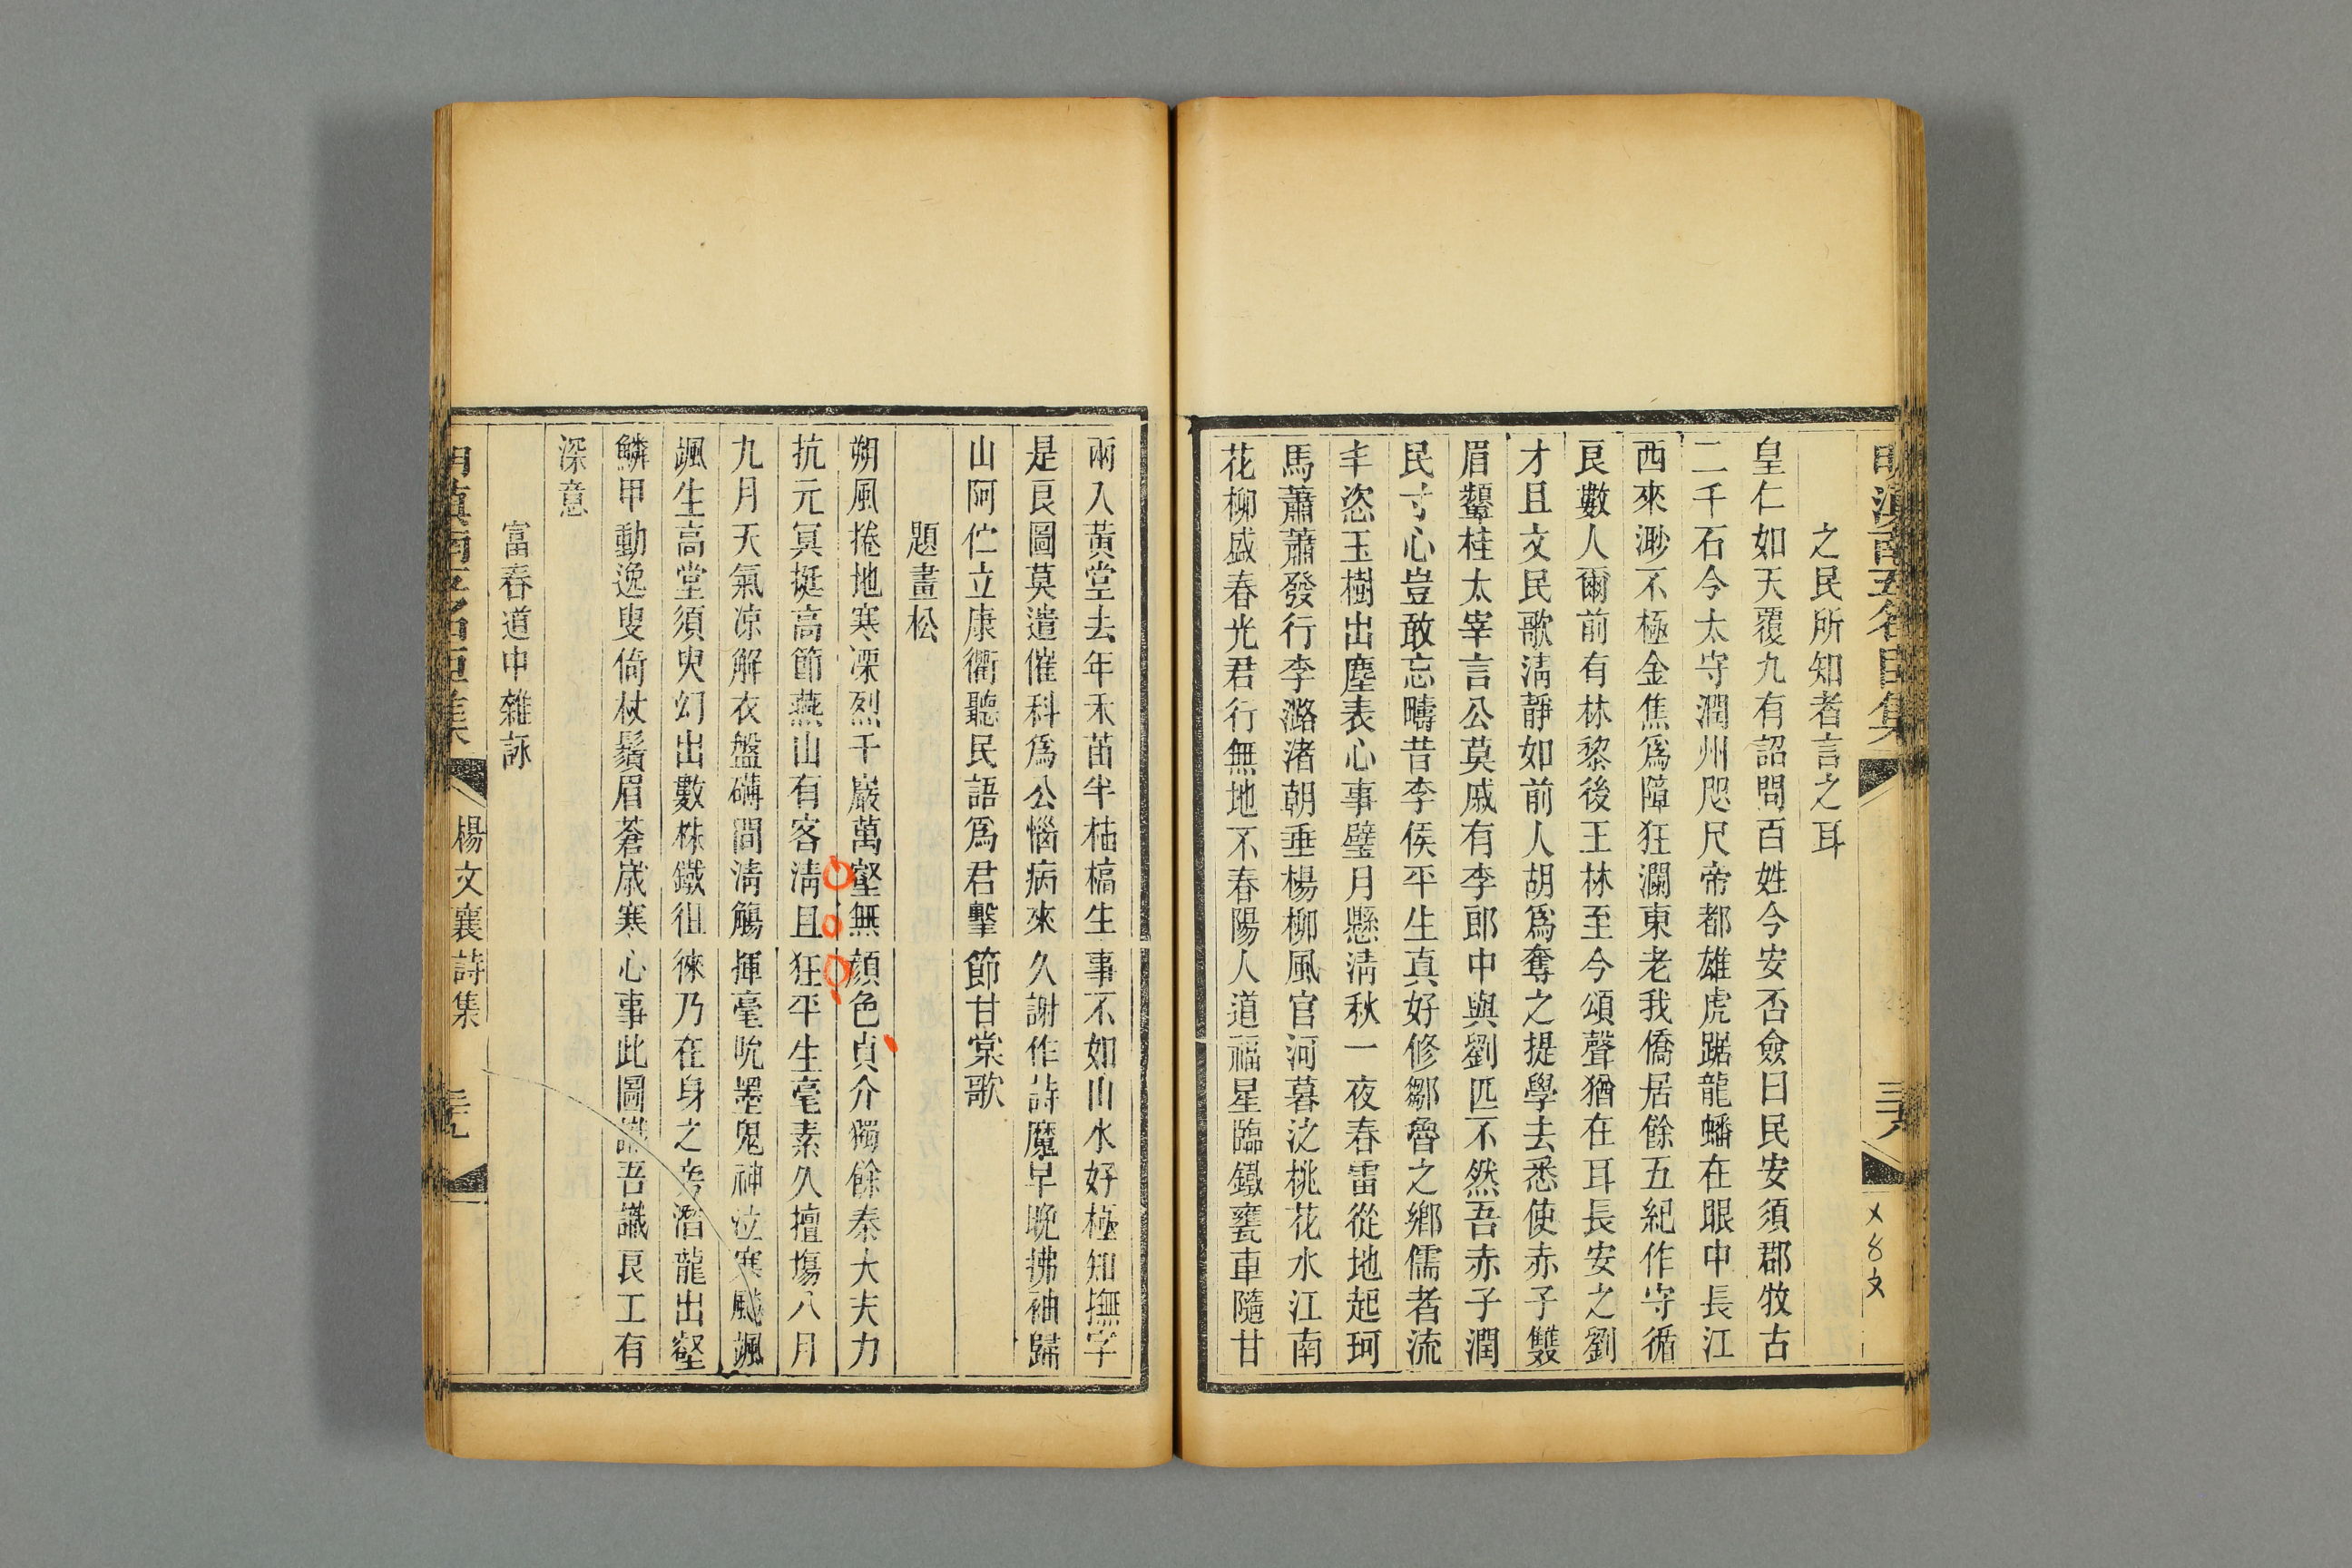 之民所知者言之耳
皇仁如天覆九有詔問百姓今安否僉曰民安須郡牧古
二千石今太守潤州咫尺帝都雄虎踞龍蟠在眼中長江
西來渺不極金焦爲障狂瀾東老我僑居餘五紀作守循
良數人爾前有林黎後王林至今頌聲猶在耳長安之劉
才且文民歌淸靜如前人胡爲奪之提學去悉使赤子雙
眉顰桂太宰言公莫戚有李郎中與劉匹不然吾赤子潤
民寸心豈敢忘疇昔李侯平生真好修鄒魯之鄉儒者流
丰恣玉樹出塵表心事璧月懸淸秋一夜春雷從地起珂
馬蕭蕭發行李潞渚朝垂楊柳風官河暮泛桃花水江南
花柳盛春光君行無地不春陽人道福星臨鐵甕車隨甘
雨入黃堂去年禾苗半枯槁生事不如山水好極知撫字
是良圖莫遣催科爲公惱病來久謝作詩魔早晚拂袖歸
山阿伫立康衢聽民語爲君擊節甘棠歌
題畫松
朔風捲地寒凓烈千巖萬壑無顔色貞介獨餘秦大夫力
抗元冥挺高節燕山有客淸且狂平生毫素久擅塲八月
九月天氣凉解衣盤礴間淸觴揮毫吮墨鬼神泣寒飈颯
颯生高堂須臾幻出數株鐵徂徠乃在身之旁潛龍出壑
鱗甲動逸叟倚杖鬚眉蒼嵗寒心事此圖識吾識良工有
深意
富春道中雜詠
楊文襄詩集